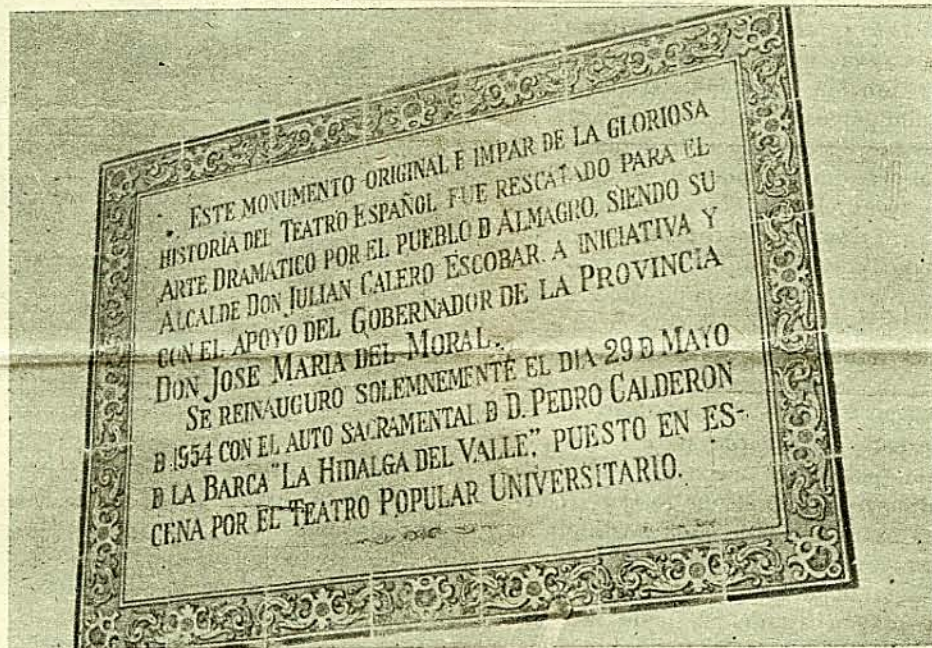 ESTE MONUMENTO ORIGINAL E IMPAR DE LA GLORIOSA
HISTORIA DEL TEATRO ESPAÑOL FUE RESCATADO PARA EL
ARTE DRAMATICO POR EL PUEBLO D ALMAGRO, SIENDO SU
ALCALDE DON JULIAN CALERO ESCOBAR A INICIATIVA Y
CON EL APOYO DEL GOBERNADOR DE LA PROVINCIA
DON JOSE MARIA DEL MORAL.
SE REINAUGURO SOLEMNEMENTE EL DIA 29 D MAYO
D 1954 CON EL AUTO SACRAMENTAL D D. PEDRO CALDERON
D LA BARCA "LA HIDALGA DEL VALLE", PUESTO EN ES-
CENA POR EL TEATRO POPULAR UNIVERSITARIO.